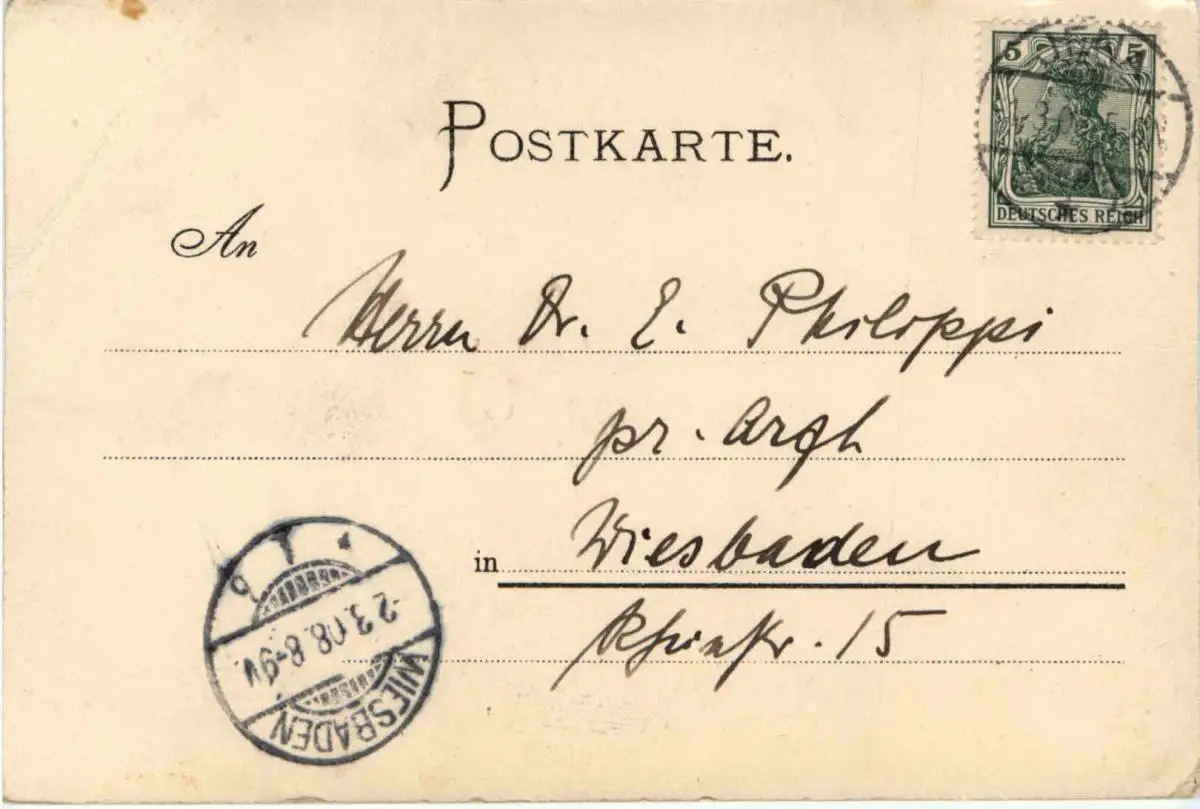 5 5
DEUTSCHES REICH
POSTKARTE.
An
Herrn Dr. E. Philippi
pr. Arzt
in Wiesbaden
Rheinstr. 15
WIESBADEN
-2.3.08.8-9V.